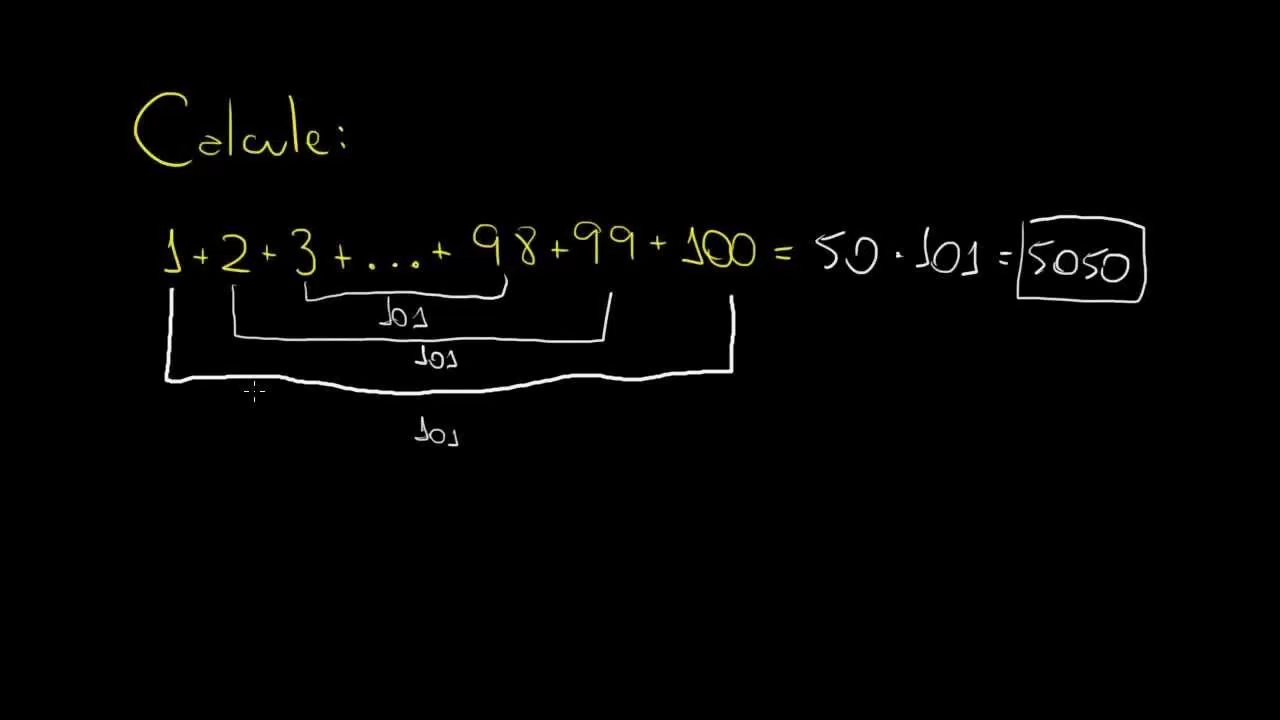 Calcule:
1 + 2 + 3 + ... + 98 + 99 + 100 = 50 · 101 = 5050
101
101
101